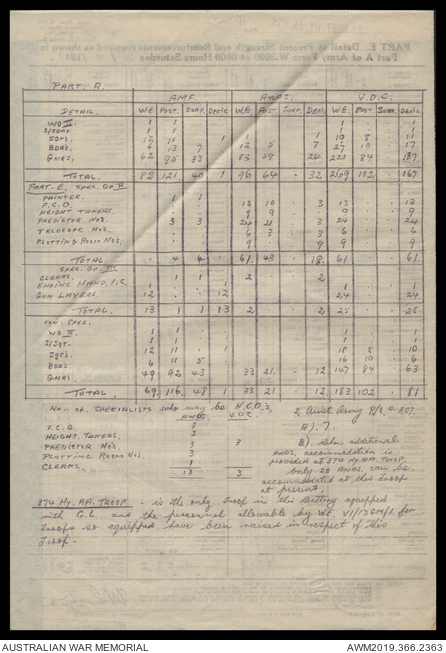 PART A.
A.M.F. A.W.A.S. V.D.C.
DETAIL. W.E. POST. SURP. DEFIC W.E. POST SURP. DEFIC. W.E. POST SURP. DEFIC.
WO II. 1 1 1 1
S/SGTS. 1 1 1 1
SGTS. 12 11 1 1 1 19 8 11
BDRS. 6 13 7 12 5 7 27 10 17
GNRS. 62 95 33 83 59 24 221 84 137
TOTAL. 82 121 40 1 96 64 32 269 102 167
PART. E. SPEC. GP. II
PAINTER. 1 1
F.C.O. 13 10 3 13 13
HEIGHT TAKERS. 9 9 9 9
PREDICTOR NO'S. 3 3 24 21 3 24 24
TELESCOPE NO'S. 6 3 3 6 6
PLOTTING ROOM NO'S. 9 9 9 9
TOTAL 4 4 61 43 18 61 61
SPEC. GP. III
CLERKS. 1 1 2 2
ENGINE HAND, I.C. 1 1 1 1
GUN LAYERS. 12 12 24 24
TOTAL. 13 1 1 13 2 2 25 25
NON. SPEC.
WO II 1 1 1 1
S/SGT. 1 1 1 1
SGTS. 12 11 1 18 8 10
BDRS 6 11 5 16 10 6
GNRS 49 92 43 33 21 12 147 84 63
TOTAL 69 116 48 1 33 21 12 183 102 81
No. of SPECIALISTS who may be N.C.O's.
AWAS. V.D.C.
F.C.O. 3
HEIGHT TAKERS. 3
PREDICTOR NO'S. 3 3
PLOTTING ROOM NO'S. 3
CLERKS. 1
13 3
2 Aust Army
A). 7.
B). When additional
AWAS. accommodation is
provided at 374 Hy. AA. TROOP.
Only 28 AWAS. can be
accommodated at this troop
at present
374 Hy. AA. TROOP. - is the only troop in this Battery equipped
with G.L. and the personnel allowable by WE. VI/13 GM/1 for
troops so equipped have been raised in respect of this
Troop.
AUSTRALIAN WAR MEMORIAL
AWM2019.366.2363